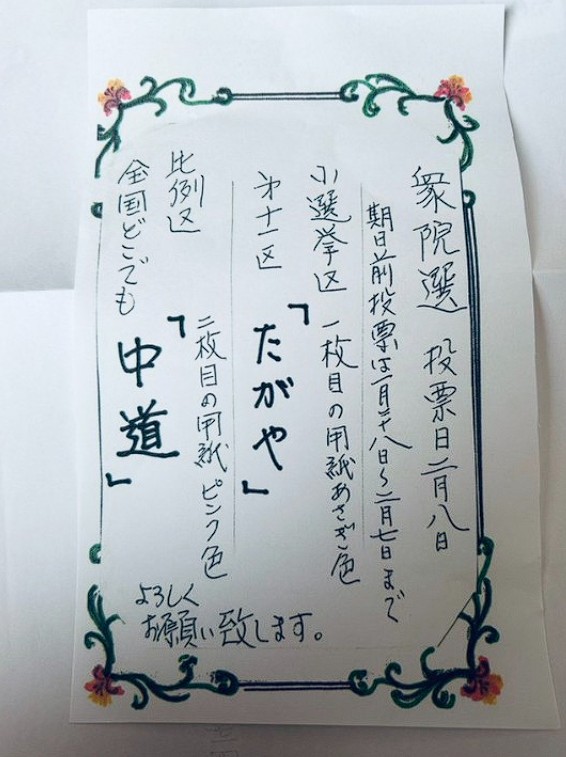 衆院選 投票日二月八日
期日前投票は一月二十八日~二月七日まで
小選挙区 一枚目の用紙あさぎ色
第十一区 「たがや」
比例区 二枚目の用紙ピンク色
全国どこでも 「中道」
よろしく
お願い致します。